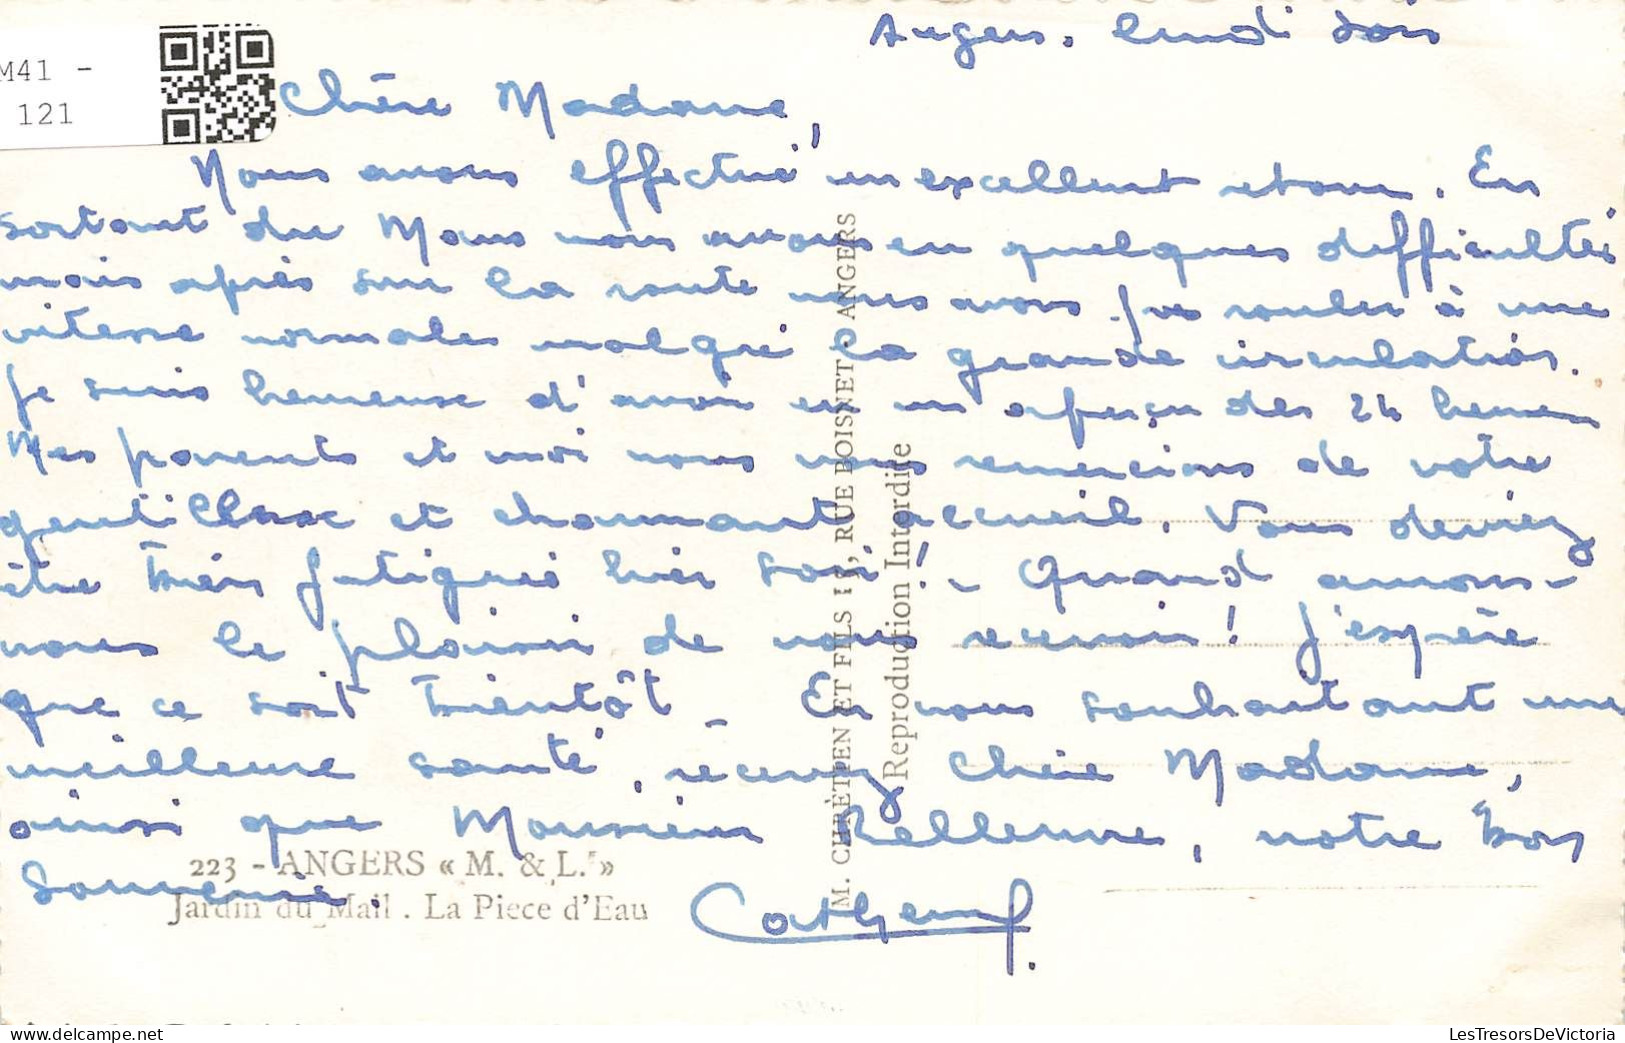 M41 -
121
Angers, lundi soir
Chère Madame,
Nous avons effectué un excellent retour. En
sortant du Mans nous avons eu quelques difficultés
mais après sur la route nous avons pu rouler à une
vitesse normale malgré la grande circulation.
Je suis heureuse d'avoir eu un aperçu des 24 heures
Mes parents et moi nous vous remercions de votre
gentillesse et charmant accueil. Vous deviez
être bien fatigués hier soir! - Quand aurons-
nous le plaisir de vous recevoir! J'espère
que ce soit bientôt - En vous souhaitant une
meilleure santé, recevez chère Madame,
ainsi que Monsieur Belleuvre, notre bon
souvenir.
223 - ANGERS « M. & L. »
Jardin du Mail . La Piece d'Eau
M. CHRÉTIEN ET FILS 18, RUE BOISNET . ANGERS
Reproduction Interdite
LesTresorsDeVictoria
www.delcampe.net